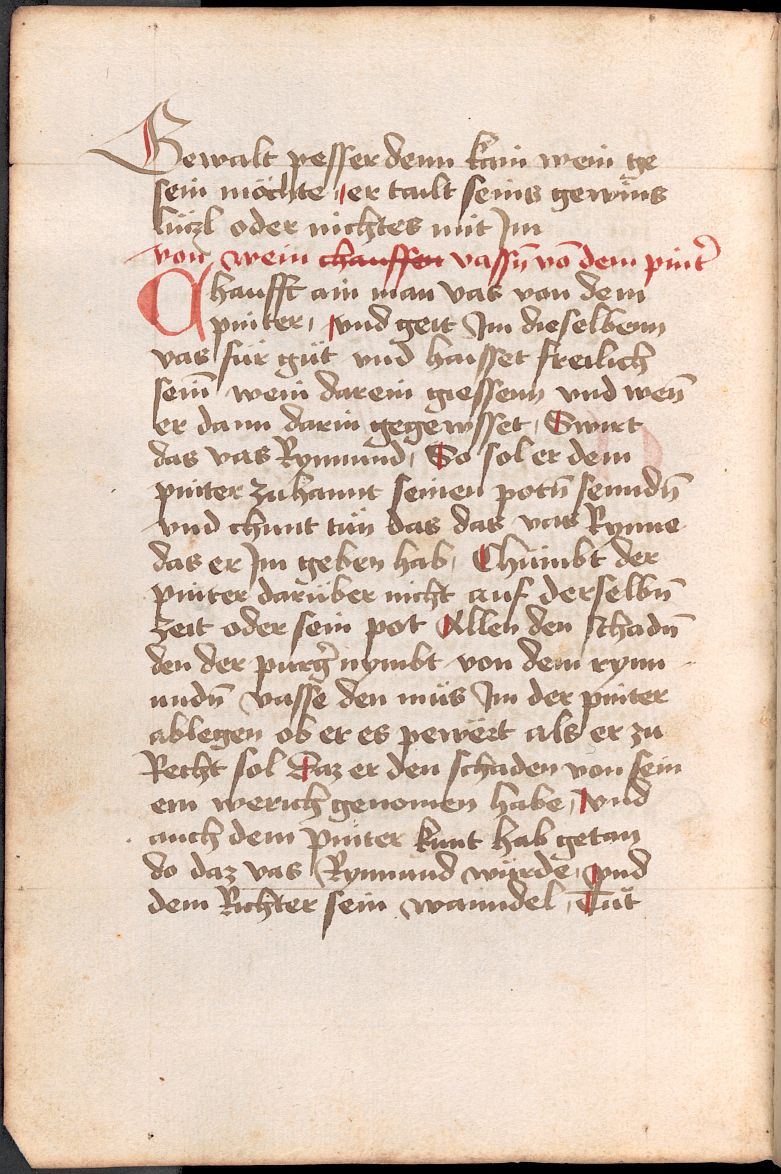 Gewalt pesser denn kain wein ge
sein möchte, er tailt seins gewins
lüczl oder nichtes mit Jm
von wein chauffen vassn̄ vō dem pint̄
Chaufft ain man vas von dem
pinter, vnd geit Jm dieselbenn
vas für güt vnd haisset freilich
sein̄ wein darein giessenn vnd wen̄
er dann darin gegewsset, Swirt
das vas Rynnund, So sol er dem
pinter zuhannt seinen potn̄ senndn̄
vnd chunt tün das das vas Rynne
das er Jm geben hab, Chümbt der
pinter darüber nicht auf derselbn̄
zeit oder sein pot Allen den schadn̄
den der purḡ nymbt von dem rynn
undn̄ vasse den müs Jm der pinter
ablegen ob er es pewert als er zu
Recht sol Daz er den schaden von sein
em werich genomen habe, vnd
auch dem pinter kunt hab getan
do daz vas Rynnund würde, vnd
dem Richter sein wanndel, Tüt